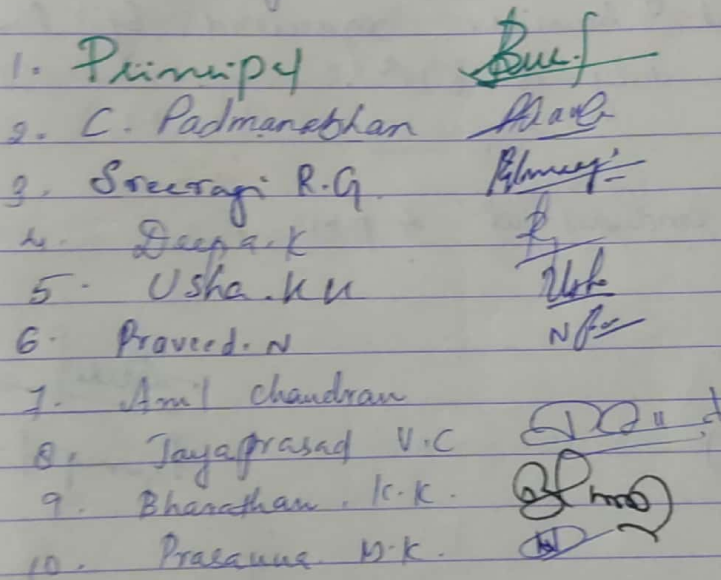 1. Principal
2. C. Padmanabhan
3. Sreeragi R.G.
4. Deepa.K
5. Usha.K K
6. Praveed.N
7. Anil Chandran
8. Jayaprasad V.C
9. Bharathan. K.K.
10. Prasanna. M.K.